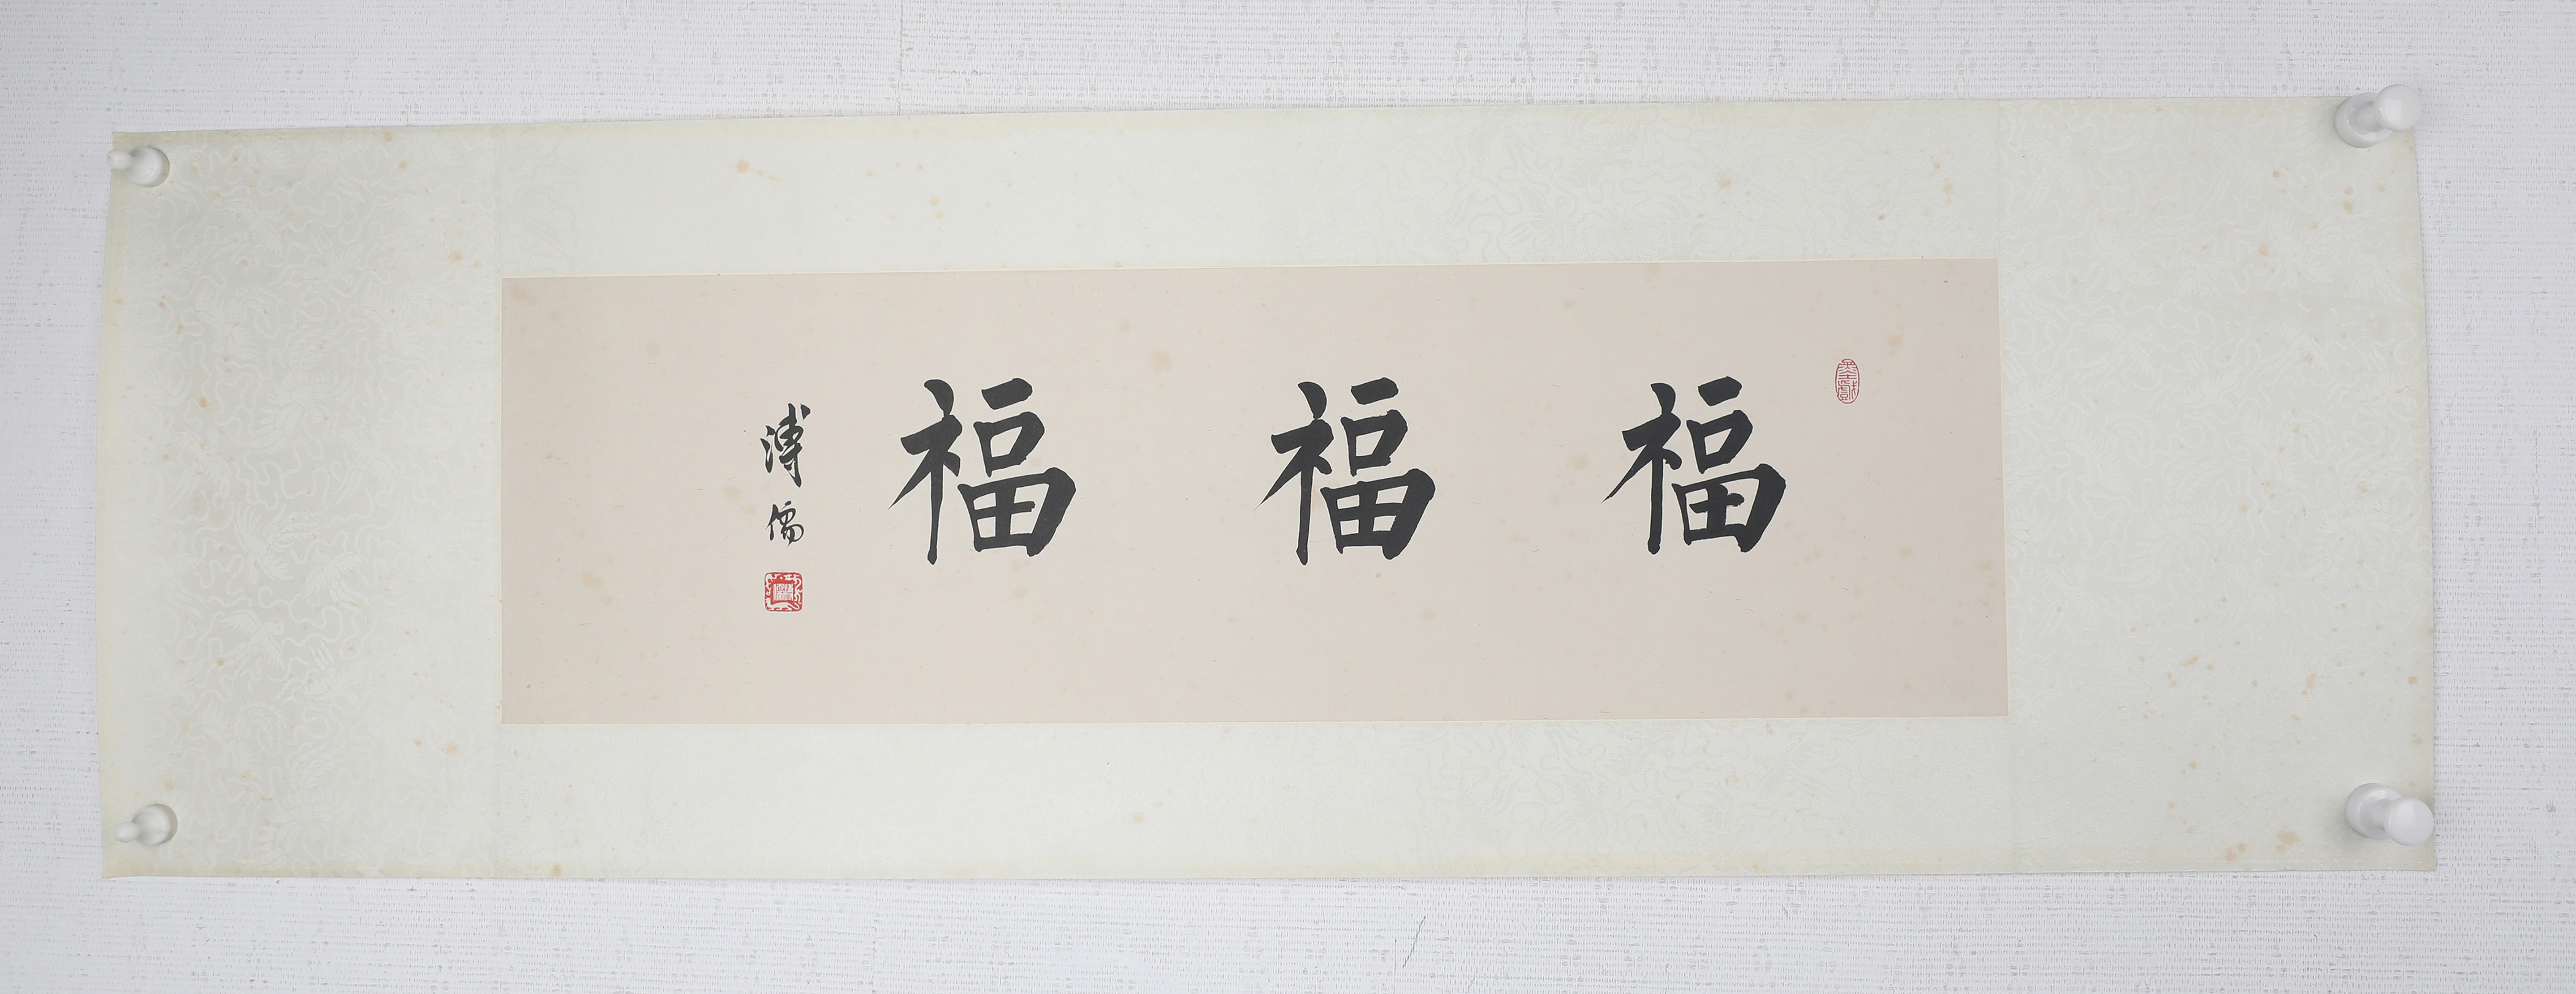 福福福
溥儒